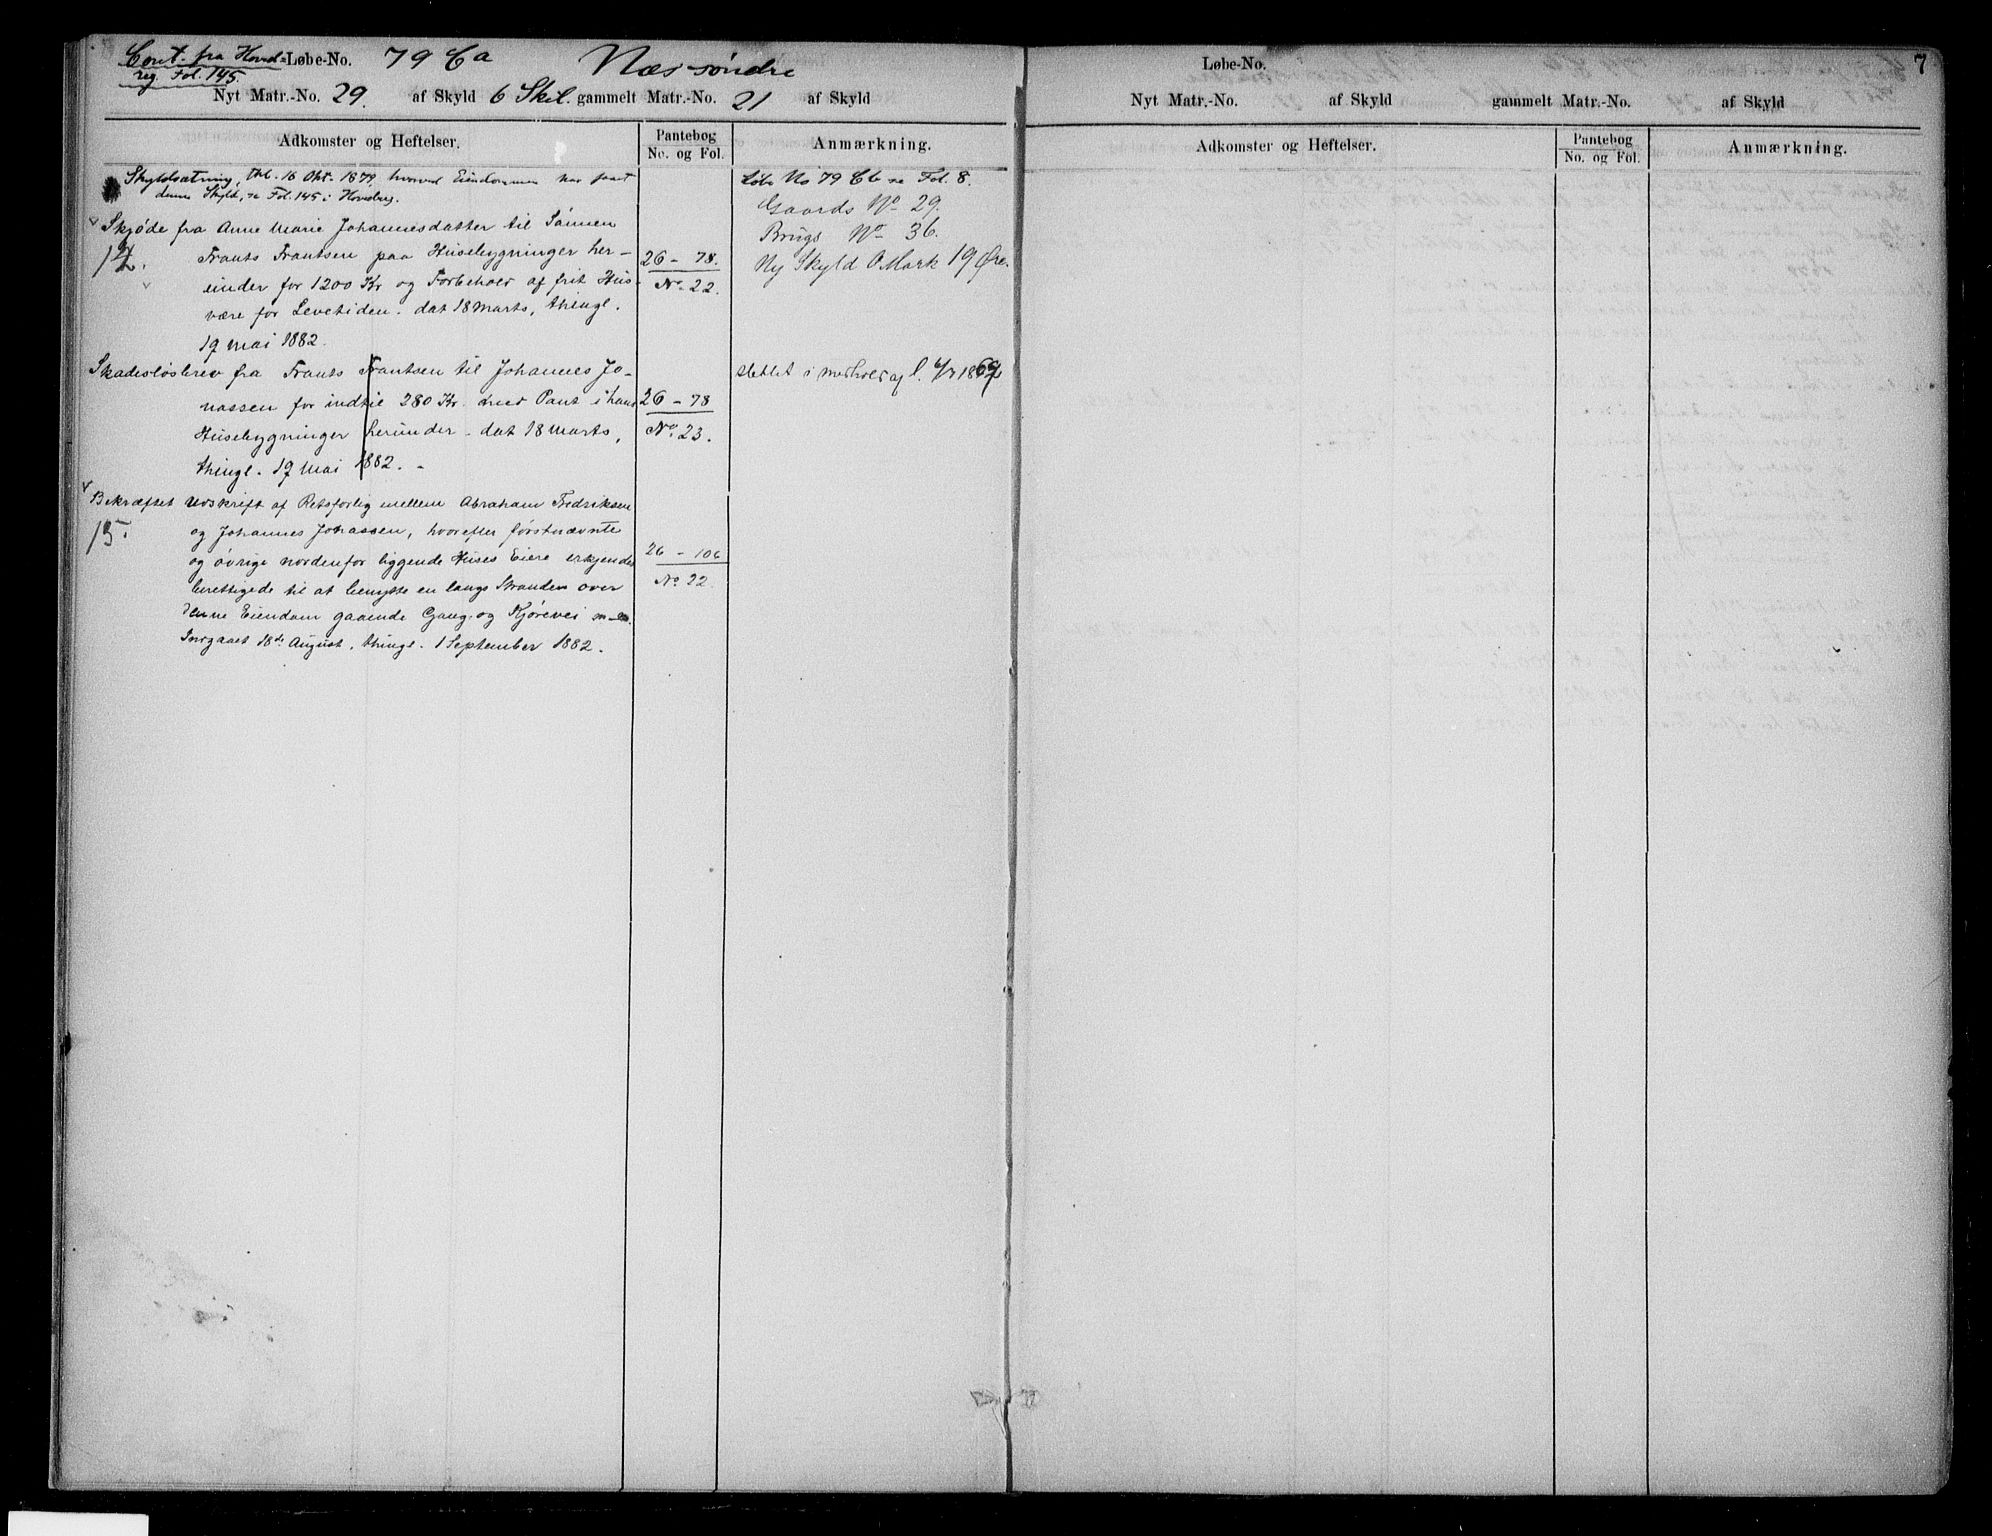 Cont. fra Hoved-
reg. Fol. 145.
Løbe-No. 79 Ca Næs søndre
Nyt Matr.-No. 29. af Skyld 6 Skil. gammelt Matr.-No. 21 af Skyld
Adkomster og Heftelser.
Pantebog
No. og Fol.
Anmærkning.
Skyldsætning, thl. 16 Okt. 1879, hvorved Eiendommen har faaet
denne Skyld, se Fol. 145 i Hovedreg.
Skjøde fra Anne Marie Johannesdatter til Sønnen
14.
Frants Frantsen paa Husebygninger her-
under for 1200 Kr og Forbehold af frit Hus-
være for Levetiden. dat 18 Marts, thingl.
19 Mai 1882.
26 – 78.
No. 22.
Skadesløsbrev fra Frants Frantsen til Johannes Jo-
nassen for indtil 280 Kr. med Pant i hans
Husebygninger herunder. dat 18 Marts,
thingl. 19 Mai 1882. -
26 – 78
No. 23.
Bekræftet Udskrift af Retsforlig mellem Abraham Fredriksen
15.
og Johannes Jonassen, hvorefter førstnævnte
og øvrige nordenfor liggende Huses Eiere erkjendes
berettigede til at benytte en langs Stranden over
denne Eiendom gaaende Gang- og Kjørevei m. m.
Indgaaet 18de August, thingl. 1 September 1882.
26 – 106
No. 22.
Løbe No 79 Cb se Fol. 8.
Gaards No 29.
Brugs No 36.
Ny Skyld 0 Mark 19 Øre.
slettet i medhold af l.
Løbe-No.
7
Nyt Matr.-No. af Skyld gammelt Matr.-No. af Skyld
Adkomster og Heftelser.
Pantebog
No. og Fol.
Anmærkning.